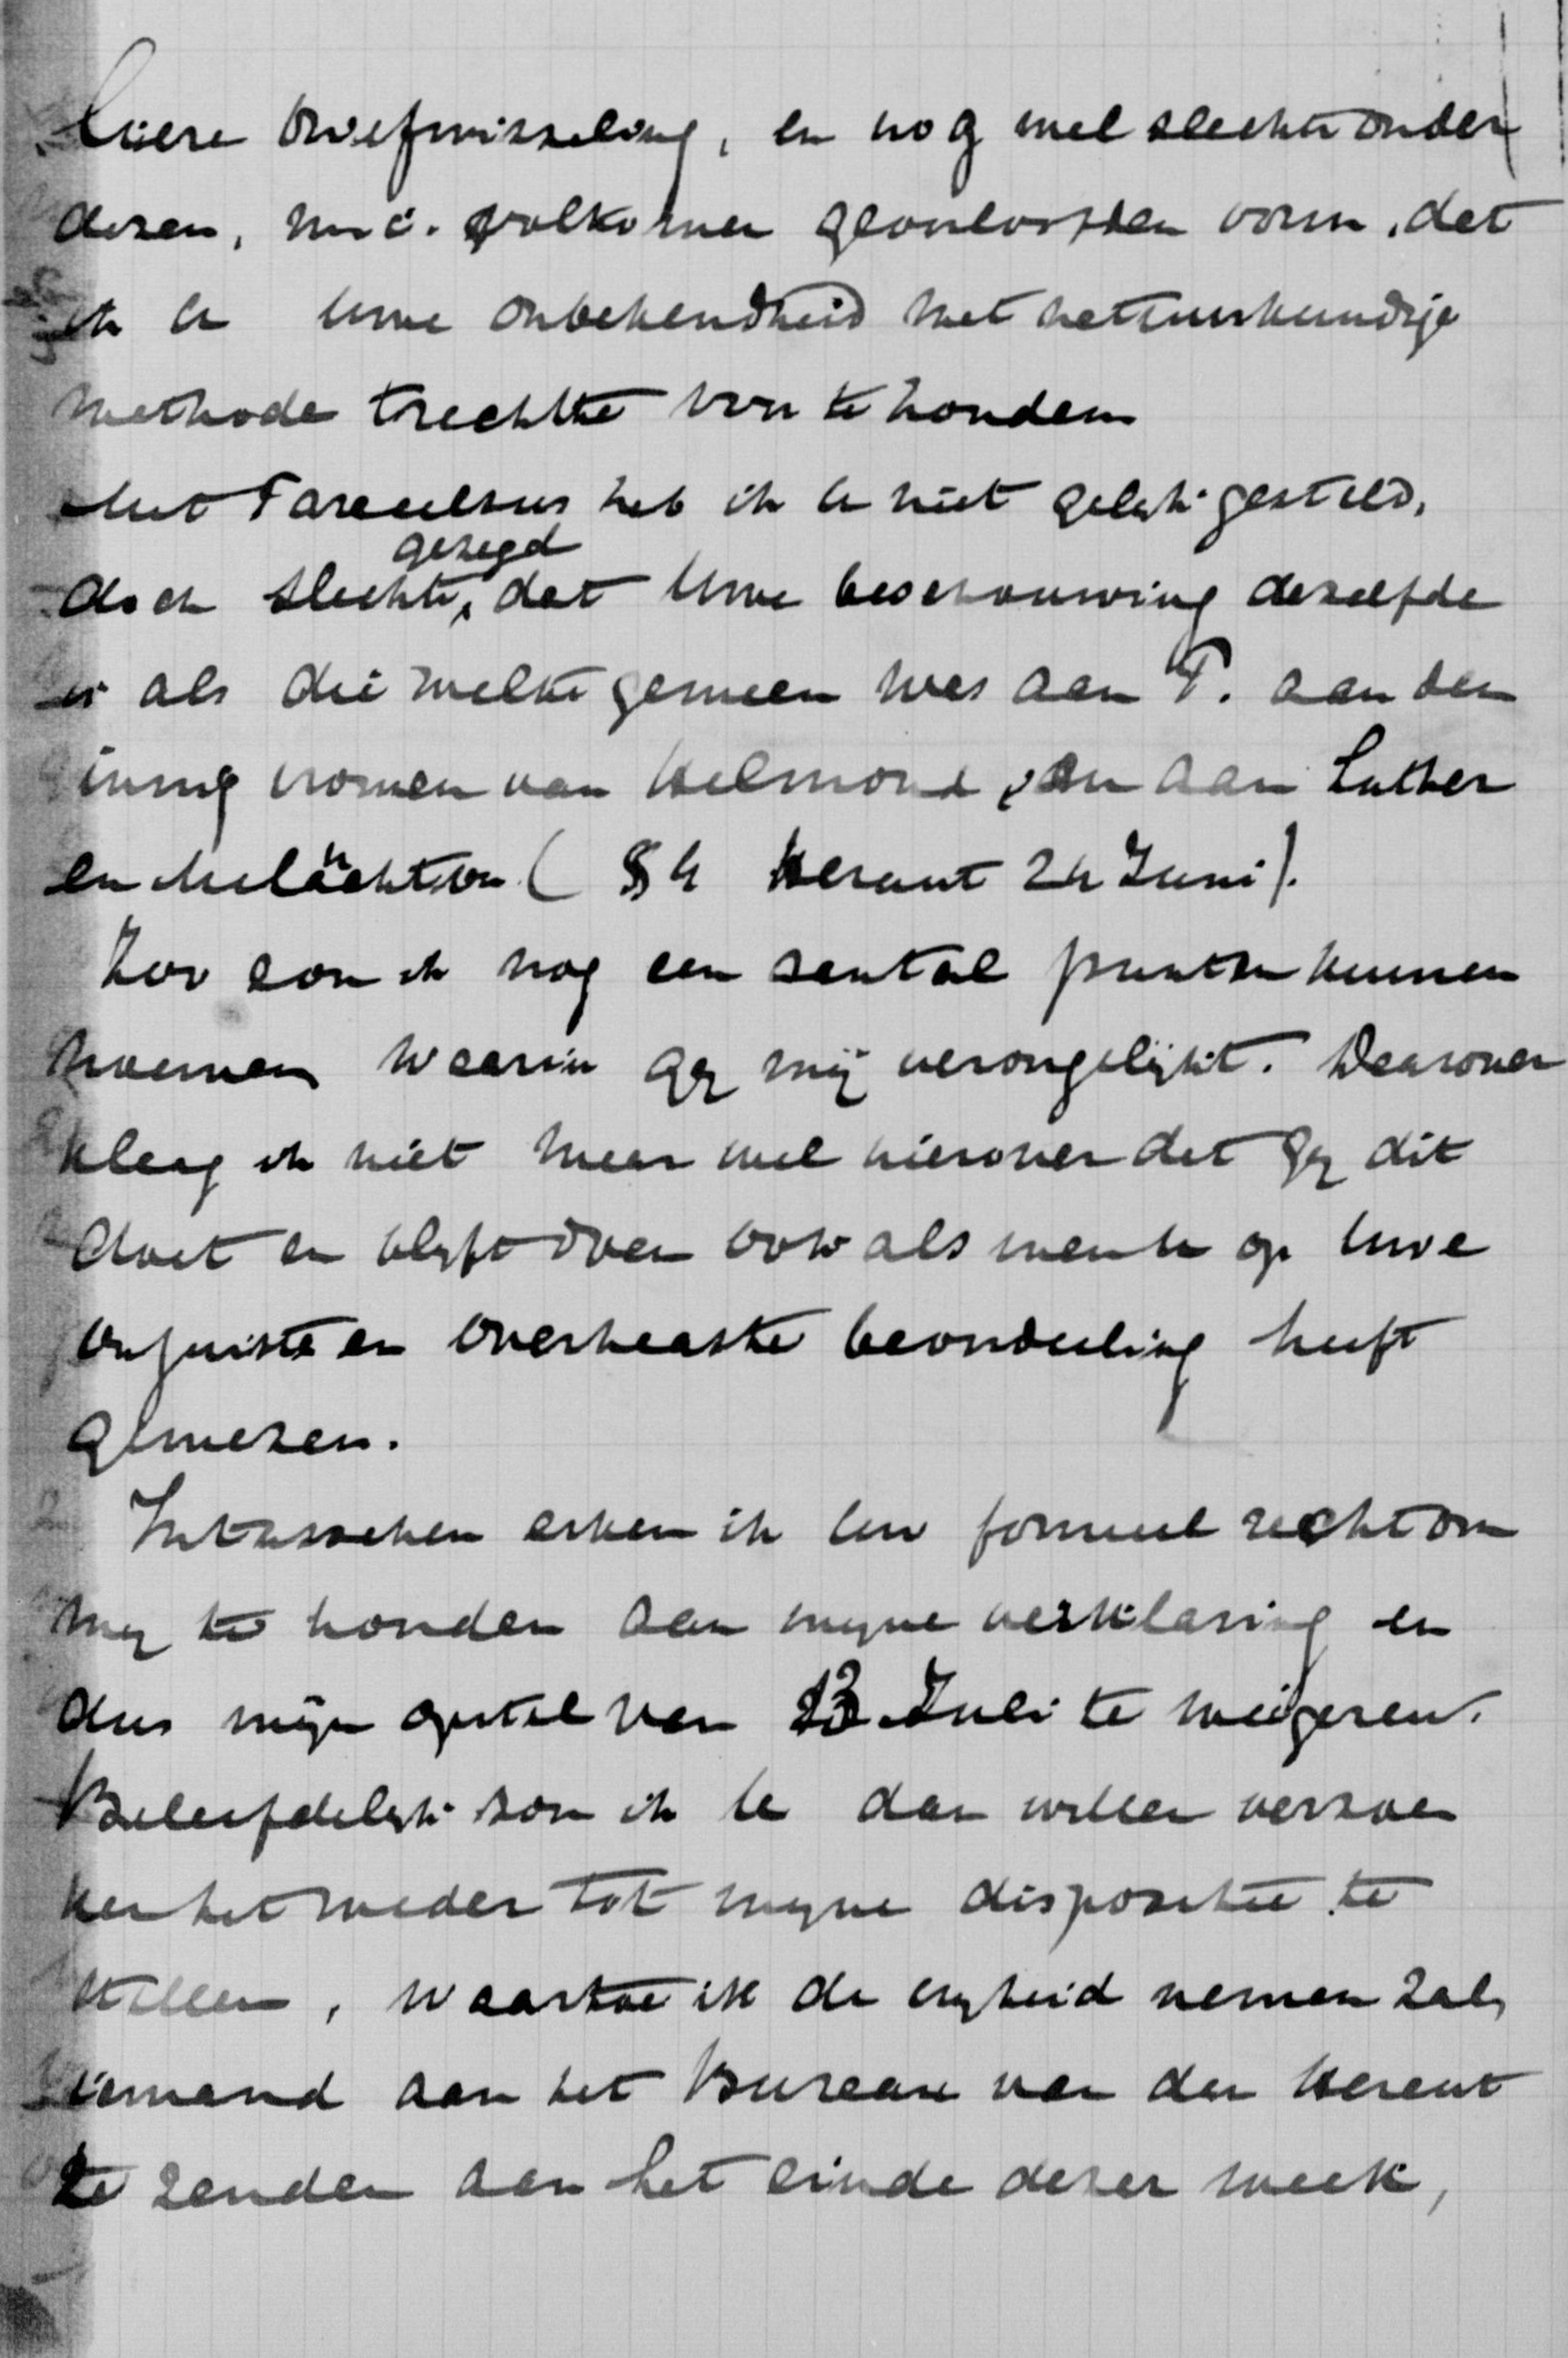 liere briefwisseling, en nog wel slechts onder
dezen, m.i. volkomen geoorloofden vorm, dat
ik U Uwe onbekendheid met natuurkundige
methode trachtte voor te houden
Met Paracelsus heb ik U niet gelijk gesteld,
doch slechts gezegd, dat Uwe beschouwing dezelfde
is als die welke gemeen was aan P. aan den
innig vromen van Helmond, en aan Luther
en Melachton (§ 4 Heraut 24 Juni).
Zoo zou ik nog een aantal punten kunnen
noemen waarin gij mij verongelijkt. Daarover
klaag ik niet maar wel hierover dat gij dit
doet en blijft doen ook als men U op Uwe
onjuiste en overhaaste beoordeeling heeft
gewezen.
Intusschen erken ik Uw formeel recht om
mij te houden aan mijne verklaring en
dus mijn opstel van 13 Juli te weigeren.
Beleefdelijk zou ik U dan willen verzoe
ken het weder tot mijne dispositie te
stellen, waartoe ik de vrijheid nemen zal,
iemand aan het Bureau van den Heraut
te zenden aan het einde dezer week,